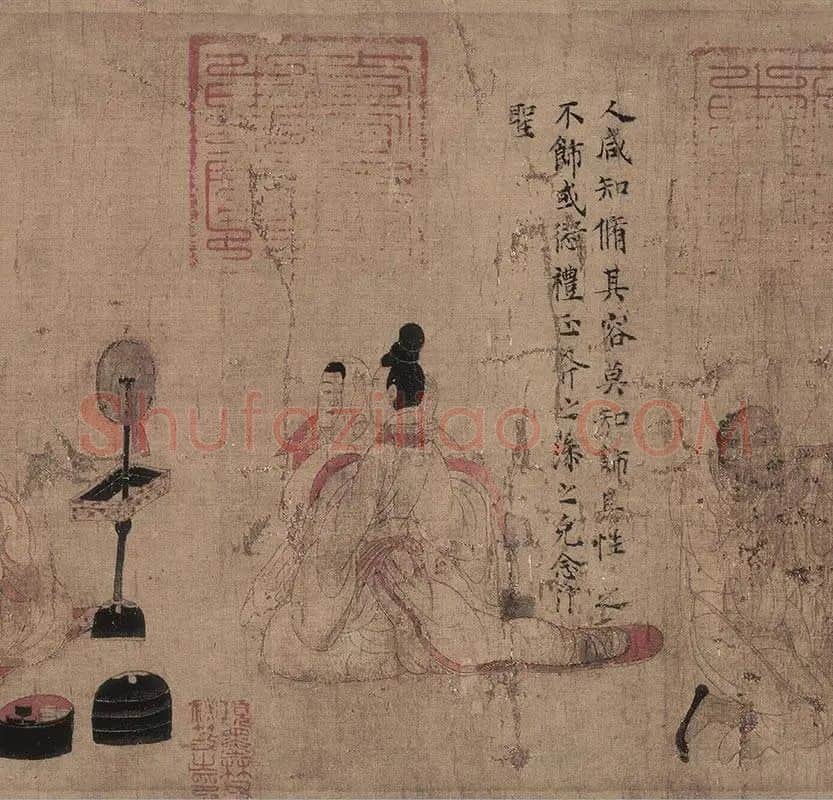 人咸知脩其容莫知飾其性之
不飾或愆禮正斧之藻之克念作
聖
Shufaziliao.COM